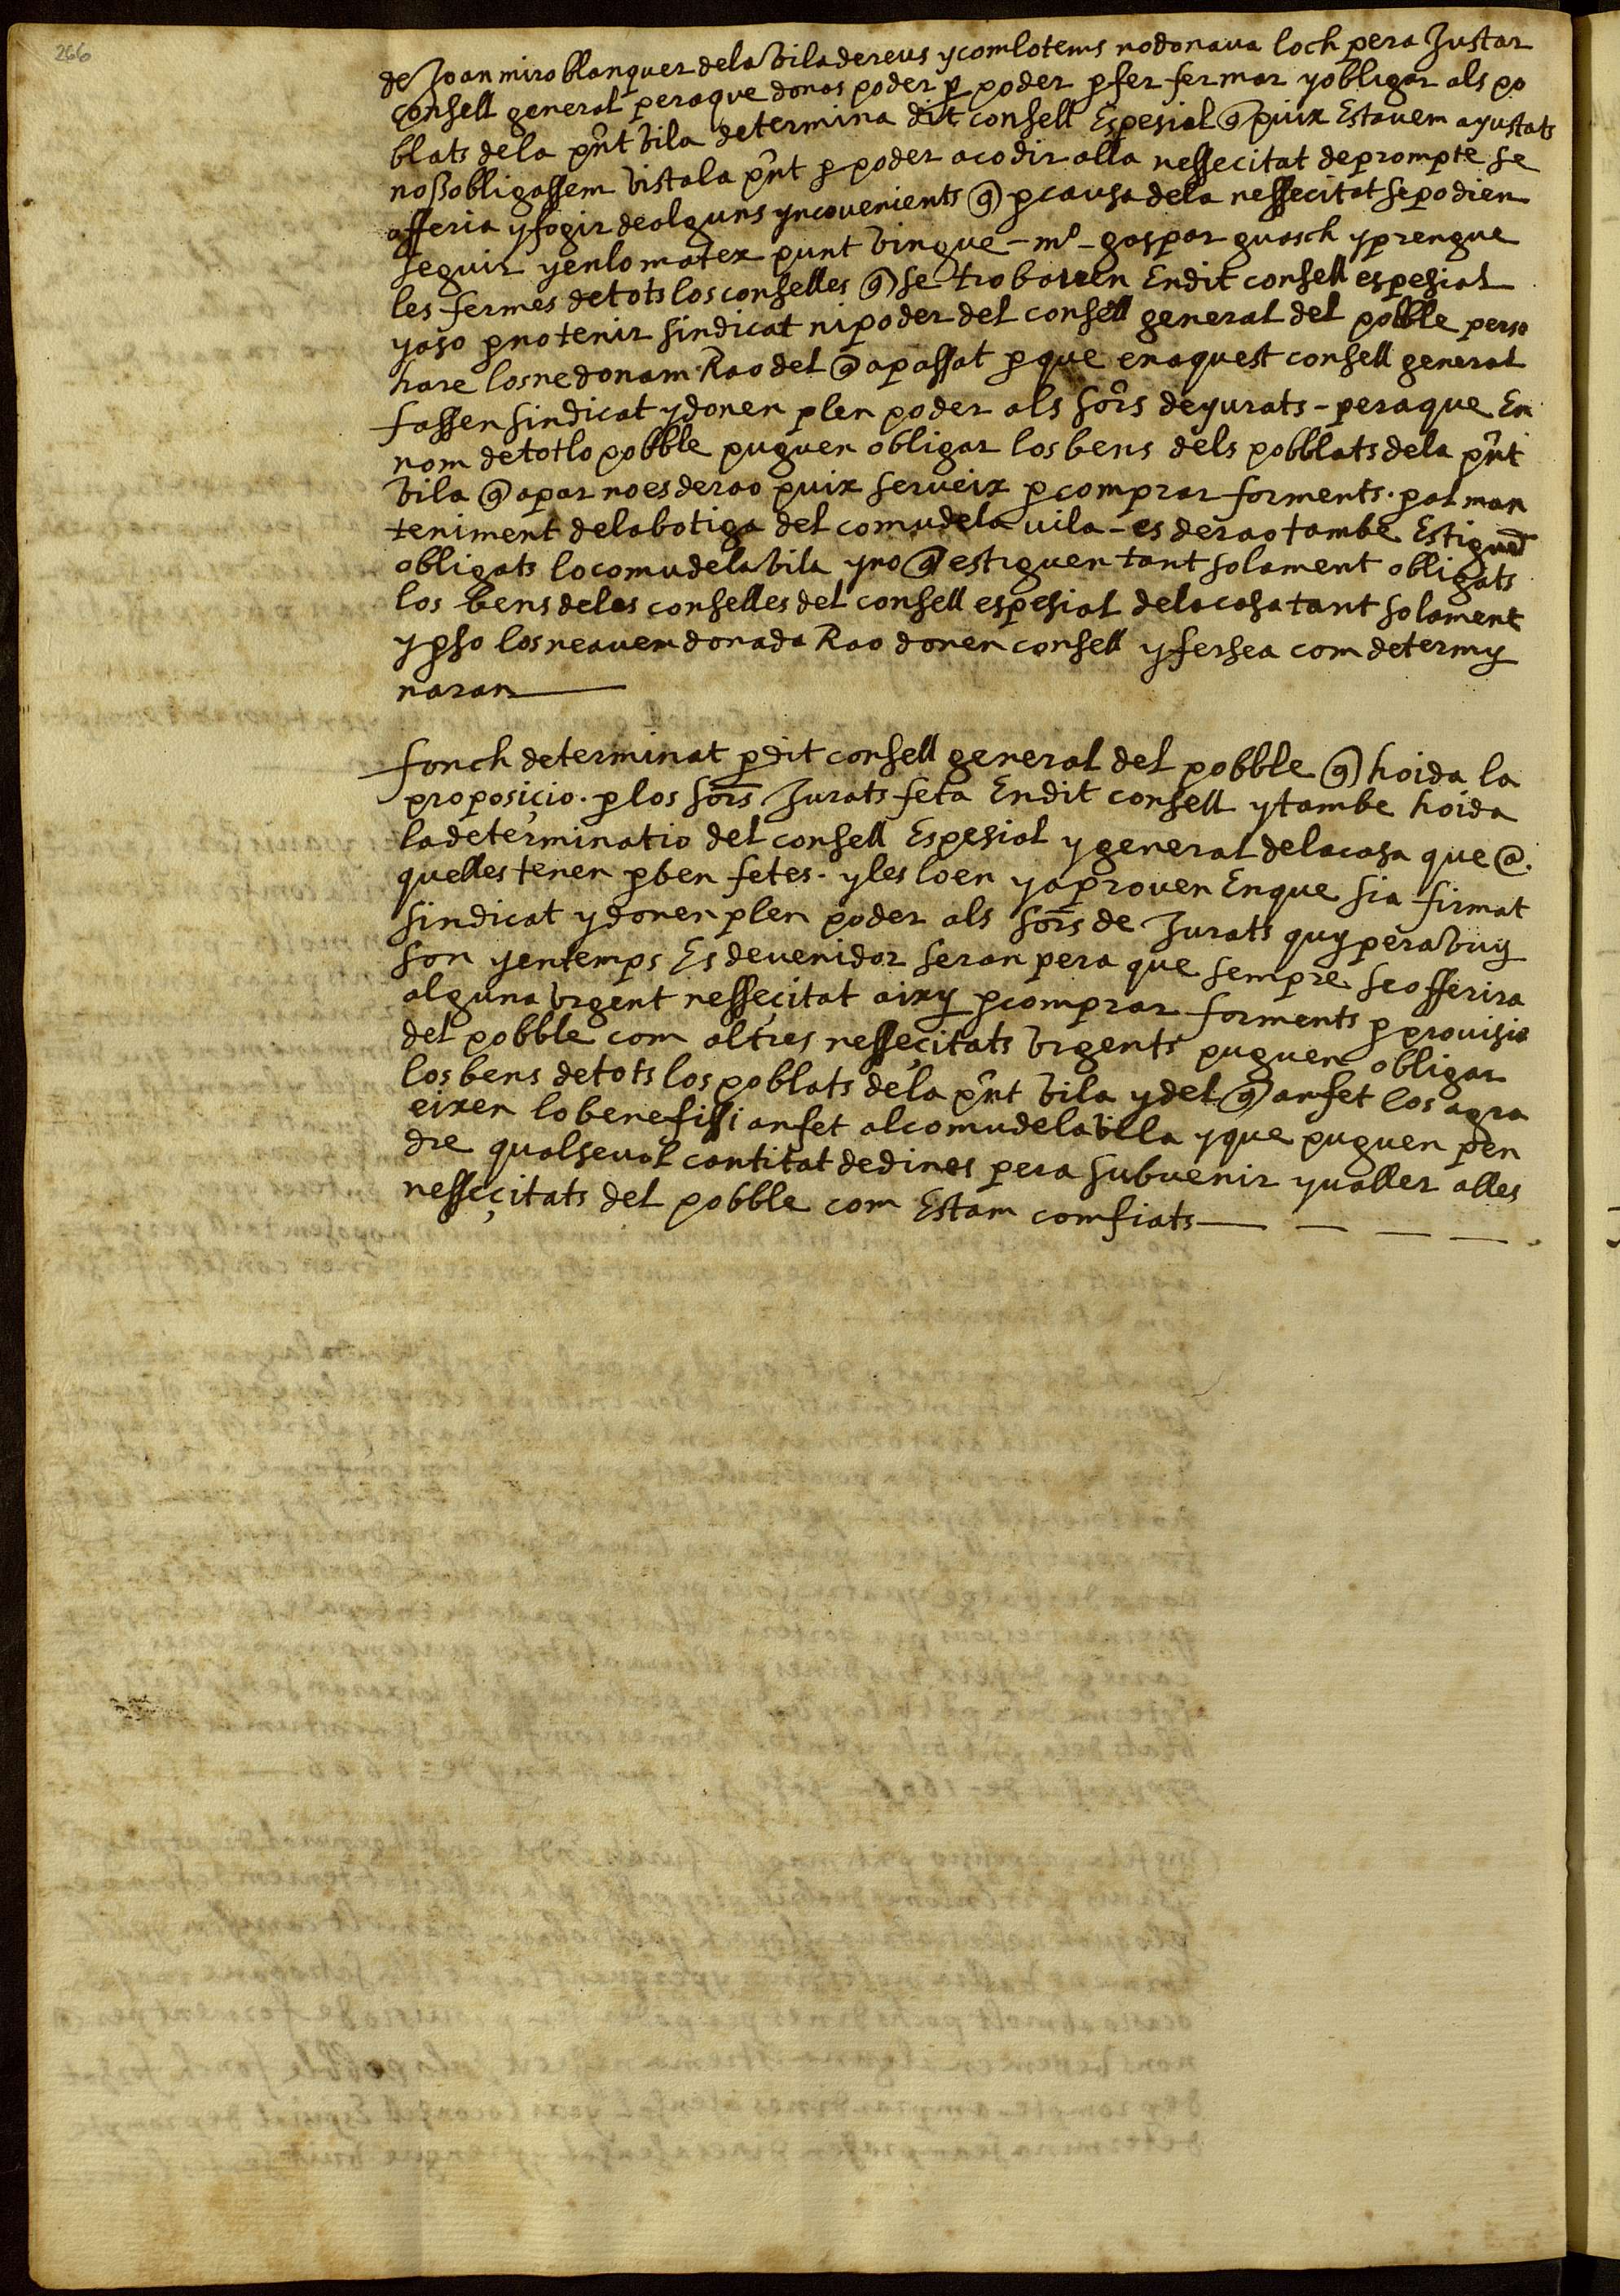 266
de Joan miro blanquer dela Vila dereus ycomlotems nodonaua loch pera Justar
consell general peraque donas poder p poder p fer fermar yobligar als po
blats dela pnt Vila determina dit consell Espesial q puix Estauem ayustats
nosobligassem vistala pnt p poder acodir alla nessecitat deprompte se
offeria yfogir dealguns yncouenients q pcausa dela nessecitat sepodien
seguir yenlomatex punt Vingue - mº - gaspar guasch yprengue
les fermes detots los conselles q se trobauen Endit consell espesial
yaso p notenir sindicat ni poder del consell general del pobble perso
hare losne donam Rao del q a passat p que enaquest consell general
fassen sindicat ydonen plen poder als sors deyurats - peraque En
nom de totlo pobble puguen obligar los bens dels pobblats dela pnt
Vila q apar noes derao puix serueix p comprar forments . pal man
teniment delabotiga del comudela uila - es derao tambe Estiguen
obligats locomudela Vila yno q estiguen tant solament obligats
los bens delos conselles del consell espesial delacasa tant solament
y pso losneauem donada Rao donen consell yfersea com determy
naran
fonch determinat p dit consell general del pobble q hoida la
proposiçio . p los sors Jurats feta Endit consell ytambe hoida
ladeterminatio del consell Espesial y general delacasa que a
quelles tenen p ben fetes . yles loen yaprouen Enque sia firmat
sindicat ydonen plen poder als sors de Jurats quy pera Vuy
son yentemps Esdevenidor seran pera que sempre se offerira
alguna Vrgent nesseçitat aixy p comprar forments p prouisio
del pobble com altres nesseçitats Vrgents puguen obligar
losbens detots los poblats dela pnt Vila ydel q anfet los agra
eixen lo benefissi anfet alcomudela Villa yque puguen pen
dre qualseuol cantitat dedines pera subuenir yualler alles
nesseçitats del pobble com Estam comfiats